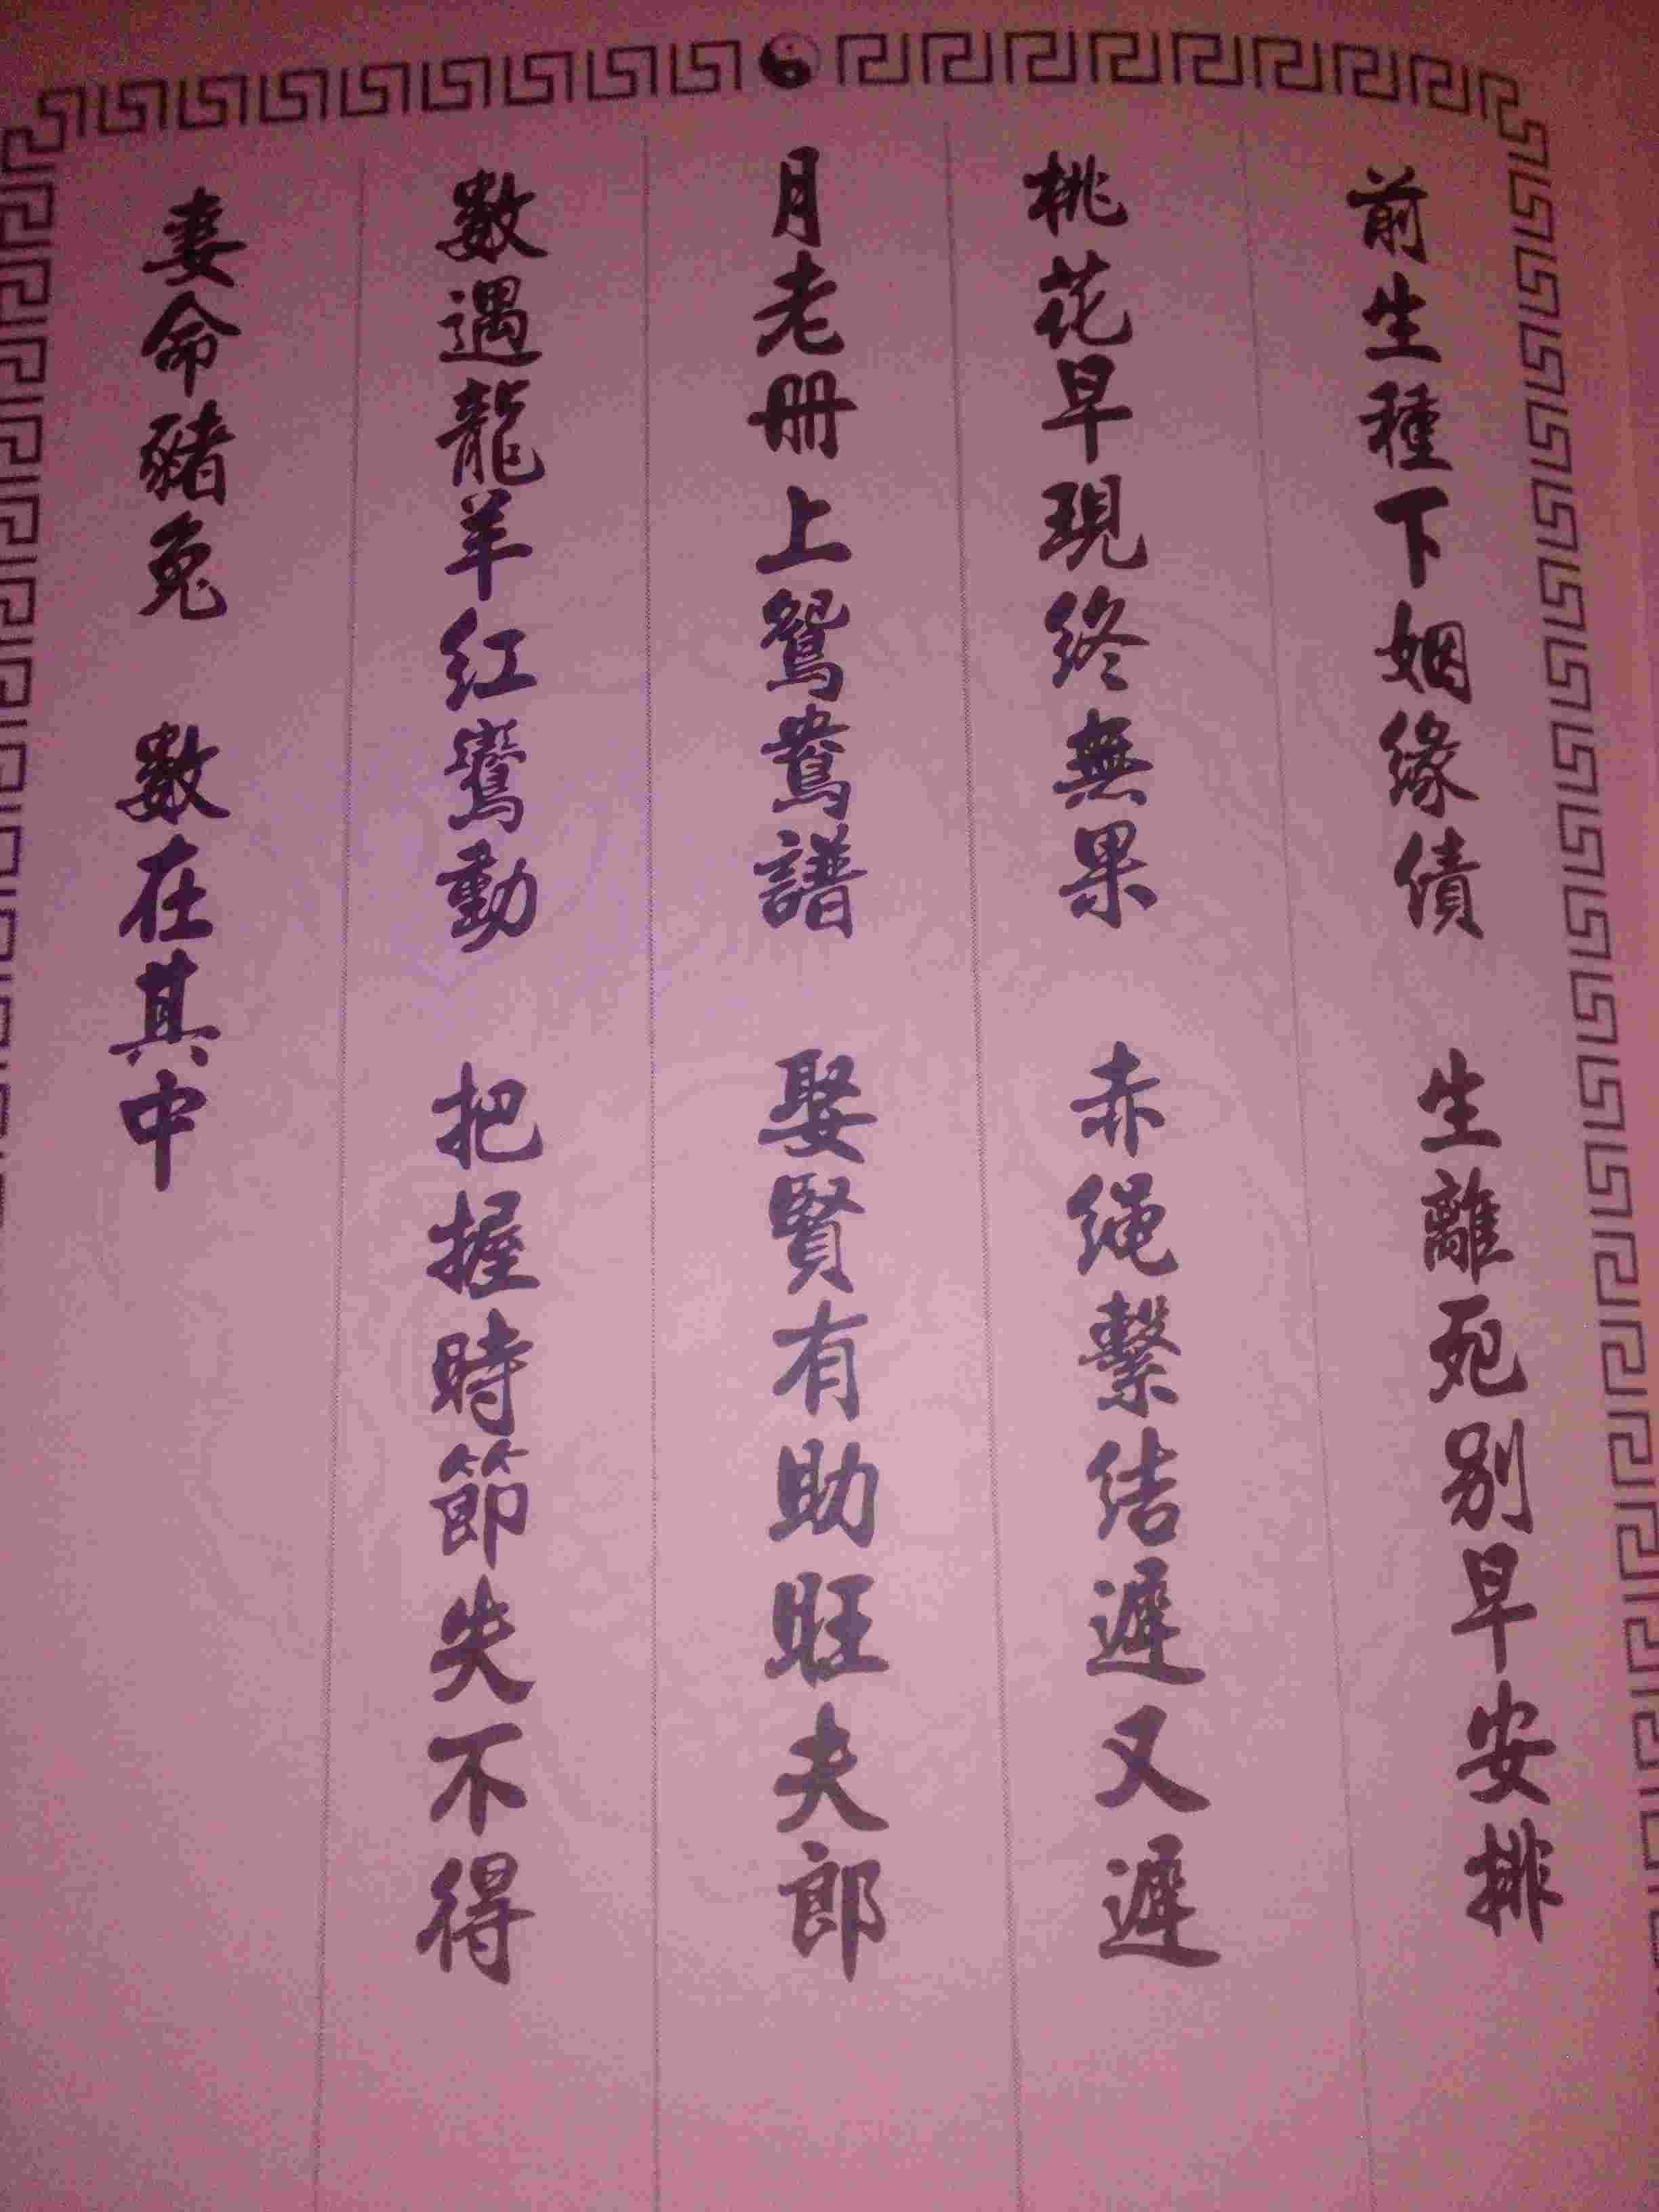 前生種下姻缘債 生離死别早安排
桃花早現終無果 赤绳繫结遲又遲
月老册上鴛鴦譜 娶賢有助旺夫郎
數遇龍羊红鸞動 把握時節失不得
妻命豬兔 數在其中